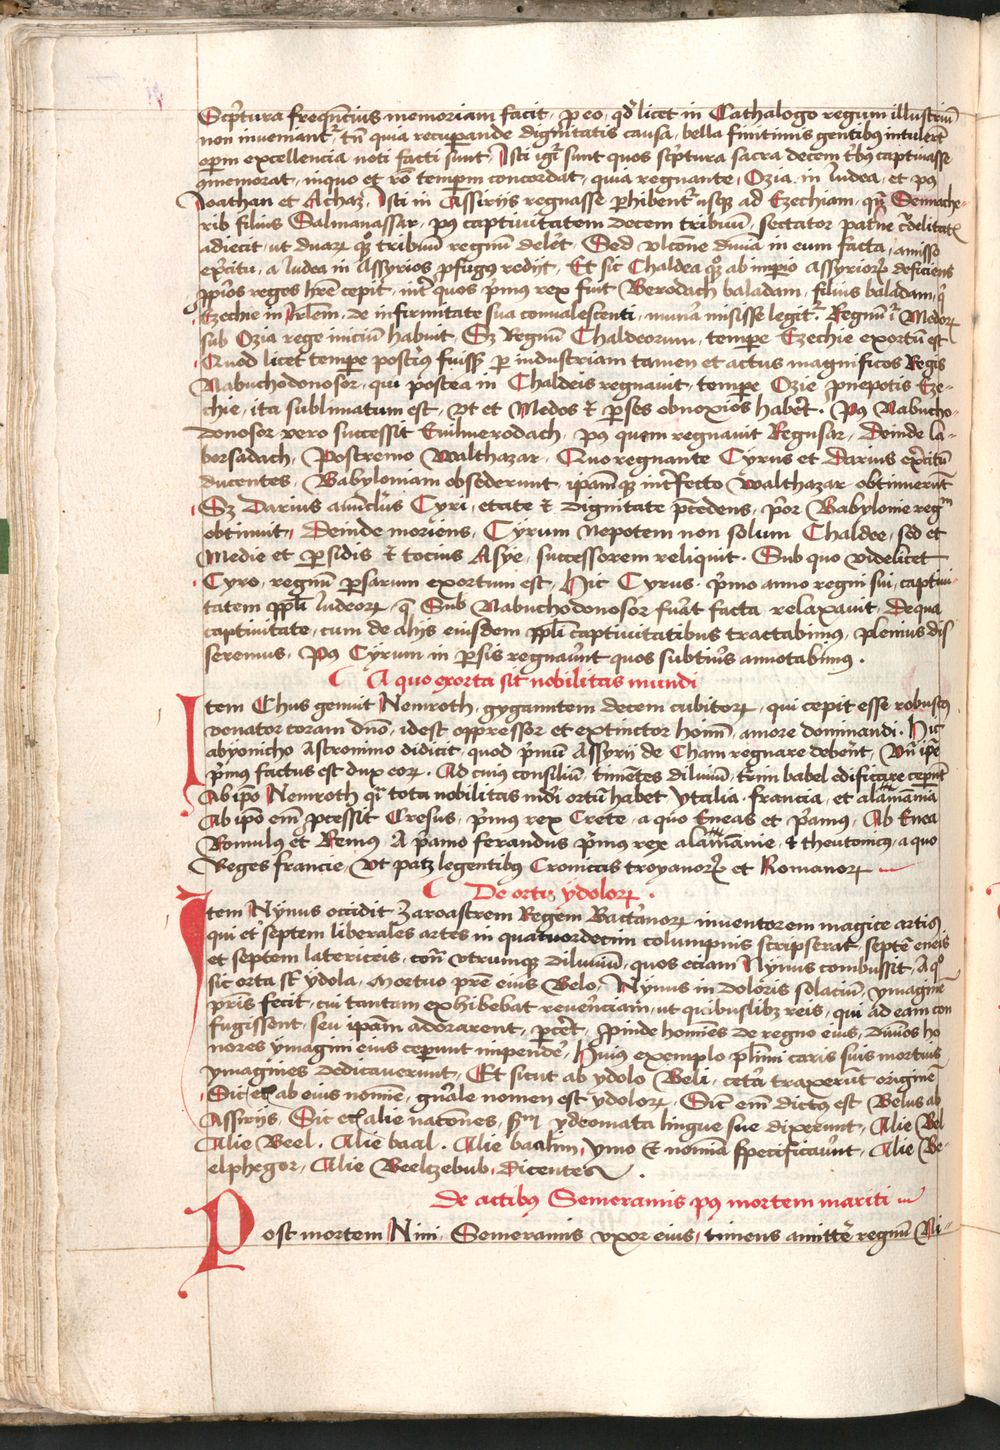 Scptura frequencius memoriam facit, p eo, qd licet in Cathalogo regum illustrium
non inveniant, tn quia recuperande dignitatis causa, bella finitimis gentibus intulert
eorum excellencia noti facti sunt, Isti igr sunt quos scptura sacra decem tbus captivasse
gmemorat, inquo et ro temporum concordat, quia regnante Ozia in Iudea, et post
Joathan et Achaz, Isti in Assirijs regnasse phibent usque ad Ezechiam, Sennache-
rib filius Salmanassar, post captivitatem decem tribuum, sectator patne crudelitatis
adiecit, ut duarum quoque tribuum regnum deleret, Sed ulcione divina in eum facta, amisso
exercitu, a Iudea in Assyrios profugus redijt, Et sic Chaldea quoque ab imperio Assyriorum deficiens
pprios reges hre cepit, inter quos primus rex fuit Berodach baladam, filius baladam, q
Ezechie in Irlem, de infirmitate sua convalescenti, munera misisse legitur. Regnum Medorum
sub Ozia rege inicium habuit, Sz Regnum Chaldeorum, tempore Ezechie exortum est
Quod licet tempore postius fuisset per industriam tamen et actus magnificos Regis
Nabuchodonosor, qui postea in Chaldeis regnavit, tempore Ozie pnepotis Eze-
chie, ita sublimatum est, ut et Medos et perses obnoxios haberet. Post Nabucho-
donosor vero successit Evilmerodach, post quem regnavit Regusar, Deinde la-
borsadach, Postremo Walthazar, Quo regnante Cyrus et Darius exercitum
ducentes, Babyloniam obsederunt, ipamque interfecto Walthazar obtinuerunt
Sz Darius avunculus Cyri, etate et dignitate precedens, prior Babylonie regnum
obtinuit, Deinde moriens, Cyrum nepotem non solum Chaldee, sed et
Medie et persidis et tocius Asye, successorem reliquit. Sub quo videlicet
Cyro, regnum persarum exortum est, Hic Cyrus. primo anno regni sui, captivi-
tatem ppli Iudeorum, que Sub Nabuchodonosor fuerat facta relaxavit, Dequa
captivitate, cum de alijs eiusdem ppli captivitatibus tractabimus, plenius dis
seremus, Post Cyrum in persis regnaverunt quos subtius annotabimus.
A quo exorta sit nobilitas mundi
Item Chus genuit Nemroth, gygantem decem cubitorum, qui cepit esse robustus
venator coram dno, idest oppressor et extinctor hominum, amore dominandi. Hic
abyonicho Astronimo didicit, quod primum Assyrij de Cham regnare deberent, Unde ipse
primus factus est dux eorum. Ad cuius consilium, timentes diluvium, turrim babel edificare ceperunt
Ab ipo Nemroth quasi tota nobilitas mundi ortum habet Ytalia, francia, et alamania
Ab ipo enim processit Cresus, primus rex Crete, a quo Eneas et priamus, Ab Enea
Romulus et Remus, A priamo ferandus primus rex alamanie, et theutonicus, a quo
Reges francie, Ut patz legentibus Cronicas troyanorum et Romanorum
De ortu ydolorum.
Item Nynus occidit Zaroastrem Regem Bactrianorum inventorem magice artis
qui et septem liberales artes in quatuordecim columpnis scripserat, septem eneis
et septem latericeis, contra utrumque diluvium, quos eciam Nynus combussit, A quo
sic orta sunt ydola, Mortuo patre eius Belo, Nynus in doloris solacium, ymaginem
patris fecit, cui tantam exhibebat reverenciam, ut quibuslibz reis, qui ad eam con
fugissent, seu ipam adorarent, parceret, Proinde homines de regno eius, divinos ho
nores ymagini eius ceperunt impendere, Huius exemplo plurimi caris suis mortuis
ymagines dedicaverunt, Et sicut ab ydolo Beli, cetera traxerunt originem
Sic et ab eius nomine, generale nomen est ydolorum, Sicut enim dictus est Belus ab
Assirijs, Sic et alie naciones, secundum ydeomata lingue sue dixerunt, Alie Bel
Alie Beel. Alie baal. Alie baalim, ymo et nomina specificaverunt, Alie Be-
elphegor, Alie Beelzebub, Dicentes.
De actibus Semeramis post mortem mariti
Post mortem Nini, Semeramis uxor eius, timens amittere regnum Ni-